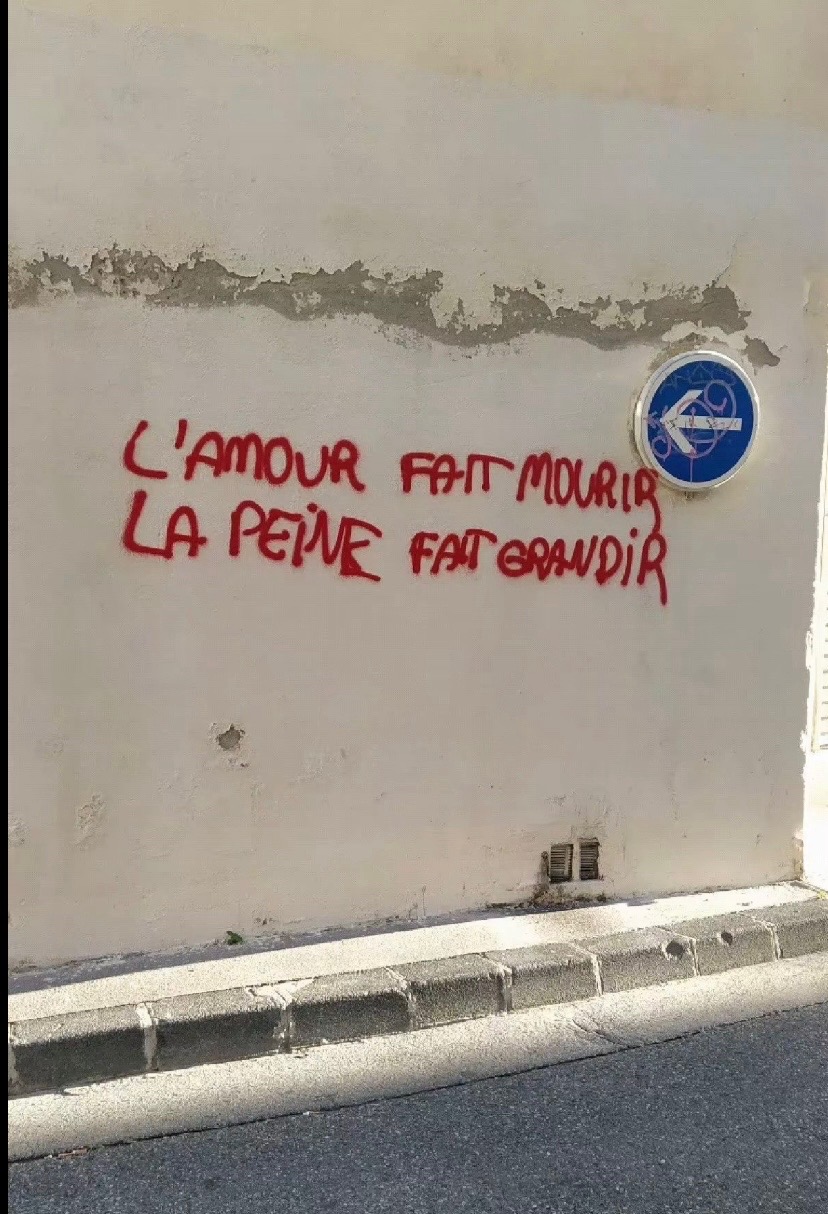 L'AMOUR FAIT MOURIR
LA PEINE FAIT GRANDIR